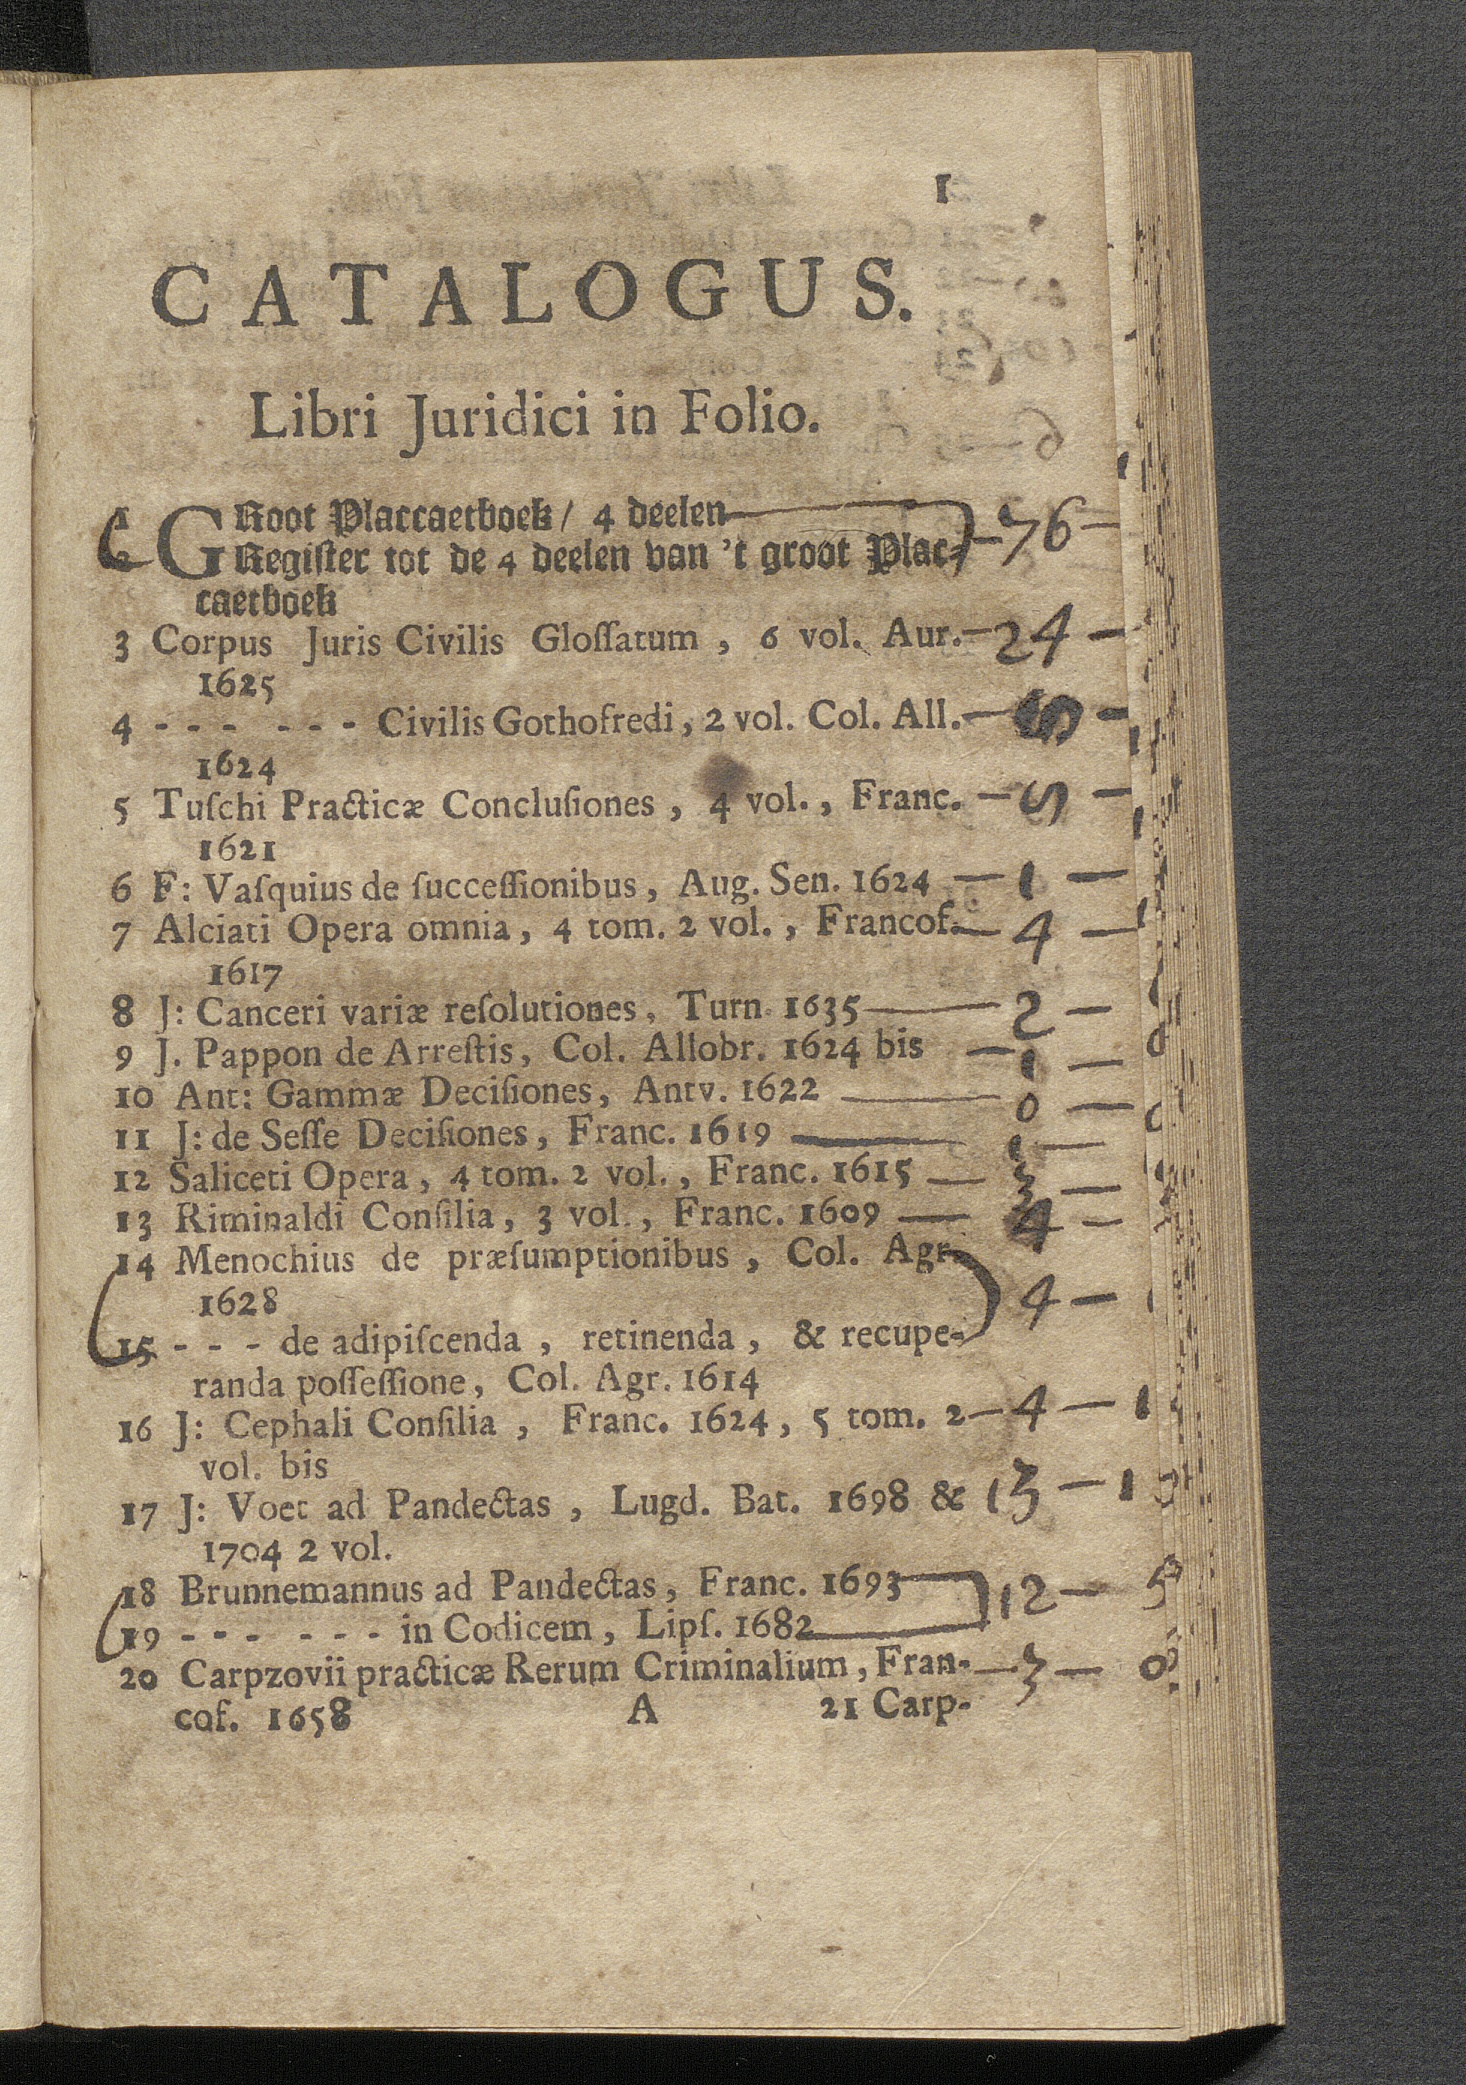 1
CATALOGUS.
Libri Juridici in Folio.
1 GRoot Placcaetboek / 4 deelen
2 Register tot de 4 deelen van 't groot Plac- 76 -
caetboek
3 Corpus Juris Civilis Gloſſatum, 6 vol. Aur. - 24 -
1625
4 - - - - - - Civilis Gothofredi, 2 vol. Col. All. -
1624
5 Tuſchi Practicæ Concluſiones, 4 vol., Franc. - S -
1621
6 F: Vaſquius de ſucceſſionibus, Aug. Sen. 1624 - 1 -
7 Alciati Opera omnia, 4 tom. 2 vol., Francof. - 4 -
1617
8 J: Canceri variæ reſolutiones, Turn. 1635 - 2 -
9 J. Pappon de Arreſtis, Col. Allobr. 1624 bis - 1 -
10 Ant: Gammæ Deciſiones, Antv. 1622 - 0 -
11 J: de Seſſe Deciſiones, Franc. 1619 - 1 -
12 Saliceti Opera, 4 tom. 2 vol., Franc. 1615 - 3 -
13 Riminaldi Conſilia, 3 vol., Franc. 1609 - 4 -
14 Menochius de præſumptionibus, Col. Agr.
1628 4 -
15 - - - de adipiſcenda, retinenda, & recupe-
randa poſſeſſione, Col. Agr. 1614
16 J: Cephali Conſilia, Franc. 1624, 5 tom. 2 - 4 - 1
vol. bis
17 J: Voet ad Pandectas, Lugd. Bat. 1698 & 13 - 1
1704 2 vol.
18 Brunnemannus ad Pandectas, Franc. 1693 12 - 5
19 - - - - - - in Codicem, Lipſ. 1682
20 Carpzovii practicæ Rerum Criminalium, Fran- - 3 - 0
cof. 1658 A 21 Carp-